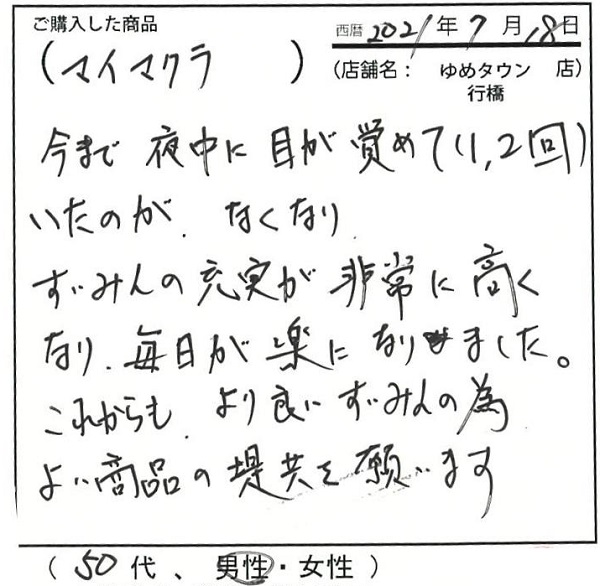 ご購入した商品
西暦 2021年7月18日
(マイマクラ)
(店舗名： ゆめタウン 店)
行橋
今まで 夜中に 目が 覚めて(1,2回)
いたのが、なくなり
ずいみんの充実が 非常に高く
なり、毎日が楽になりました。
これからも、より良いずいみんの為
よい商品の堤共を願います
(50代、男性・女性)